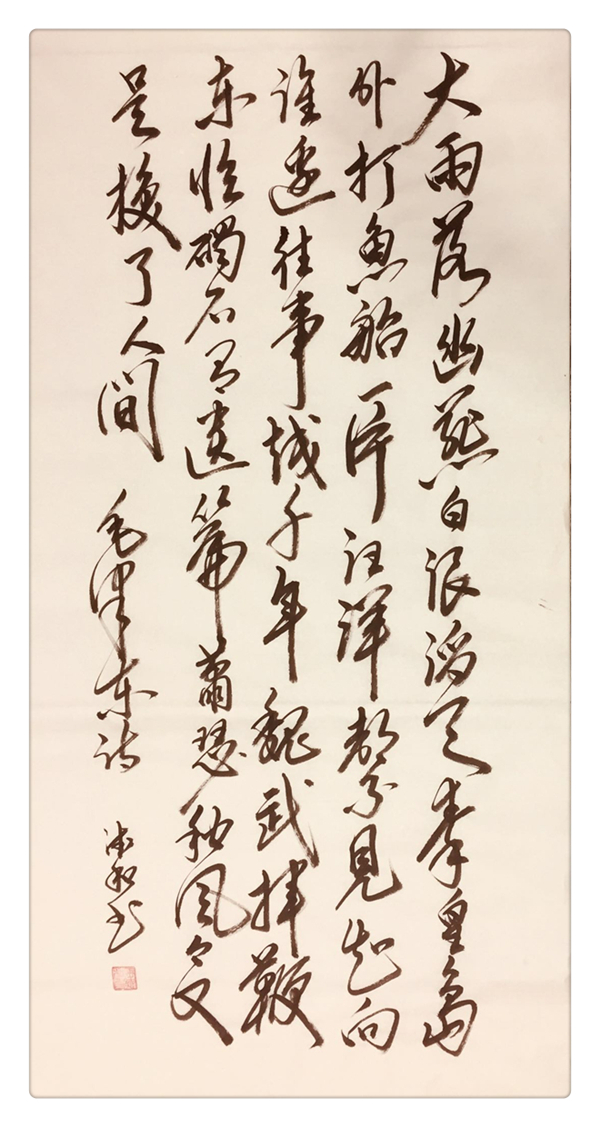 大雨落幽燕白浪滔天秦皇岛
外打鱼船一片汪洋都不见知向
谁边往事越千年魏武挥鞭
东临碣石有遗篇萧瑟秋风今又
是换了人间 毛泽东诗
书